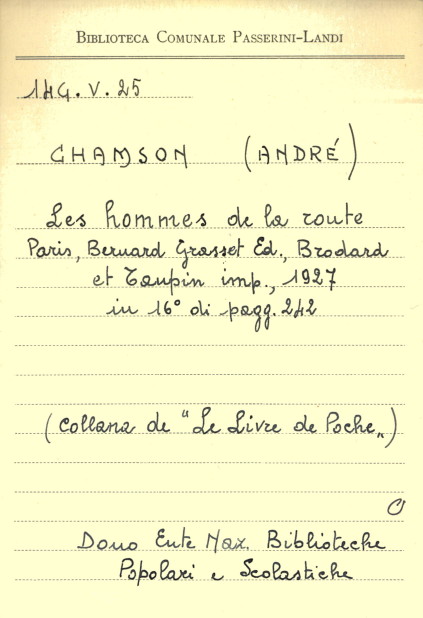 BIBLIOTECA COMUNALE PASSERINI-LANDI
14G. V. 25
CHAMSON (ANDRÉ)
Les hommes de la route
Paris, Bernard Grasset Ed., Brodard
et Taupin imp., 1927
in 16° di pagg. 242
(collana de "Le Livre de Poche„)
Dono Ente Naz. Biblioteche
Popolari e Scolastiche